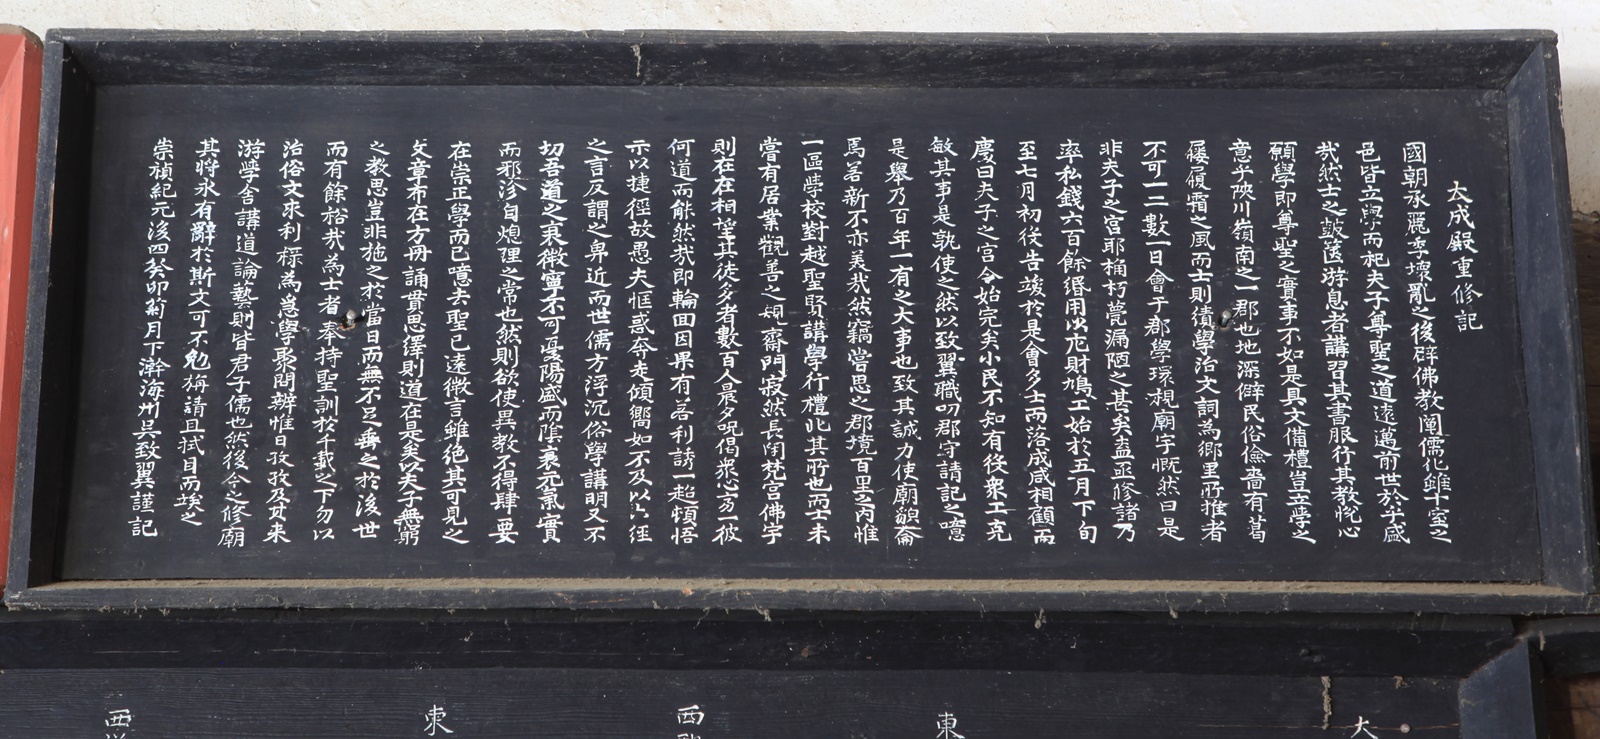 大成殿重修記
國朝承麗季壞亂之後辟佛教闡儒化雖十室之
邑皆立學而祀夫子尊聖之道遠邁前世於乎盛
哉然士之鼓篋游息者講習其書服行其教悅心
願學即尊聖之實事不如是具文備禮豈立學之
意乎陜川嶺南之一郡也地深僻民俗儉嗇有葛
屨履霜之風而士則績學治文詞為鄉里所推者
不可一二數一日會于郡學環視廟宇慨然曰是
非夫子之宮耶桷朽甍漏陋之甚矣盍亟修諸乃
率私錢六百餘緡用以庀財鳩工始於五月下旬
至七月初役告竣於是會多士而落成咸相顧而
慶曰夫子之宮今始完矣小民不知有役衆工克
敏其事是孰使之然以致翼職叨郡守請記之噫
是擧乃百年一有之大事也致其誠力使廟貌侖
焉若新不亦美哉然竊嘗思之郡境百里之內惟
一區黌校對越聖賢講學行禮此其所也而士未
嘗有居業觀善之規齋門寂然長閉梵宮佛宇
則在在相望其徒多者數百人最多呪偈衆心方一彼
何道而能然哉即輪回因果有若利誘一超頓悟
示以捷徑故愚夫恇惑奔走傾嚮如不及以以徑
之言反謂之卑近而世儒方浮沉俗學講明又不
切吾道之衰微寧不可憂陽盛而陰衰元氣實
而邪沴自熄理之常也然則欲使異教不得肆要
在崇正學而已噫夫聖已遠微言雖絕其可見之
文章布在方冊誦貫思繹則道在是矣以夫子無窮
之教思豈非施之於當日而無不足垂之於後世
而有餘裕哉為士者奉持聖訓於千載之下勿以
治俗文求利祿為急學聚問辨惟日孜孜及其來
游學舍講道論藝則皆君子儒也然後今之修廟
其將永有辭於斯文可不勉旃請且拭目而竢之
崇禎紀元後四癸卯菊月下澣海州吳致翼謹記
大
東
西
東
西